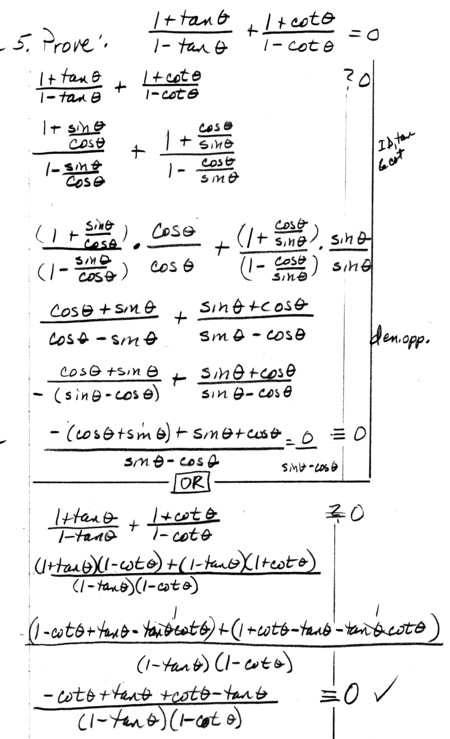 5. Prove: (1+tanθ)/(1-tanθ) + (1+cotθ)/(1-cotθ) = 0
(1+tanθ)/(1-tanθ) + (1+cotθ)/(1-cotθ) ? 0
(1+ sinθ/cosθ)/(1- sinθ/cosθ) + (1+ cosθ/sinθ)/(1- cosθ/sinθ) ID, tan & cot
(1+ sinθ/cosθ)/(1- sinθ/cosθ) · cosθ/cosθ + (1+ cosθ/sinθ)/(1- cosθ/sinθ) · sinθ/sinθ
(cosθ+sinθ)/(cosθ-sinθ) + (sinθ+cosθ)/(sinθ-cosθ) den. opp.
(cosθ+sinθ)/-(sinθ-cosθ) + (sinθ+cosθ)/(sinθ-cosθ)
(-(cosθ+sinθ)+sinθ+cosθ)/(sinθ-cosθ) = 0/(sinθ-cosθ) ≡ 0
OR
(1+tanθ)/(1-tanθ) + (1+cotθ)/(1-cotθ) ≟ 0
((1+tanθ)(1-cotθ)+(1-tanθ)(1+cotθ))/((1-tanθ)(1-cotθ))
((1-cotθ+tanθ-tanθcotθ)+(1+cotθ-tanθ-tanθcotθ))/((1-tanθ)(1-cotθ)) 1 1
(-cotθ+tanθ+cotθ-tanθ)/((1-tanθ)(1-cotθ)) ≡ 0 ✓